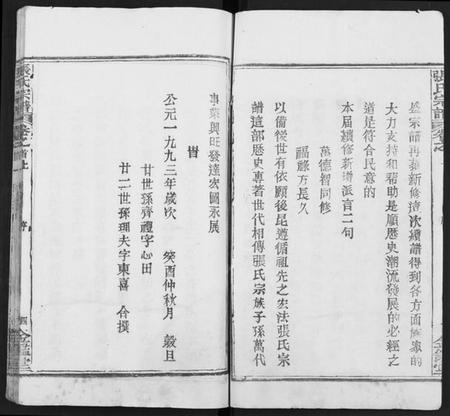 張氏宗譜
金鑑堂
是宗譜再集新修這次續譜得到各方面族眾的
大力支持和幫助是順歷史潮流發展的必經之
道是符合民意的
本屆續修新增派言二句
萬德智同修
福祿方長久
以備後世有依願後昆遵循祖先之宏法張氏宗
譜這部歷史專著世代相傳張氏宗族子孫萬代
事業興旺發達宏圖永展
公元一九九三年歲次 癸酉仲秋月 穀旦
廿世孫齊禮字心田
廿二世孫理夫字東喜 仝撰
張氏宗譜
序
四
金鑑堂